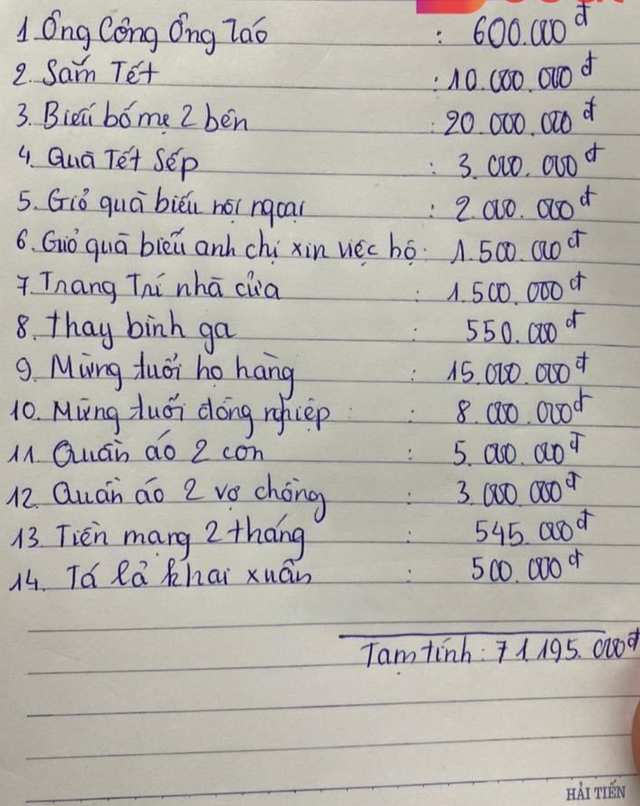 1 Ông Công Ông Táo : 600.000đ
2. Sắm Tết : 10.000.000đ
3. Biếu bố mẹ 2 bên : 20.000.000đ
4. Quà Tết Sếp : 3.000.000đ
5. Giỏ quà biếu nội ngoại : 2.000.000đ
6. Giỏ quà biếu anh chị xin việc hộ : 1.500.000đ
7. Trang Trí nhà cửa : 1.500.000đ
8. thay bình ga : 550.000đ
9. Mừng tuổi họ hàng : 15.000.000đ
10. Mừng tuổi đồng nghiệp : : 8.000.000đ
11. Quần áo 2 con : 5.000.000đ
12. Quần áo 2 vợ chồng : 3.000.000đ
13. Tiền mạng 2 tháng : 545.000đ
14. Tá lả khai xuân : 500.000đ
Tạm tính : 71.195.000đ
HẢI TIẾN